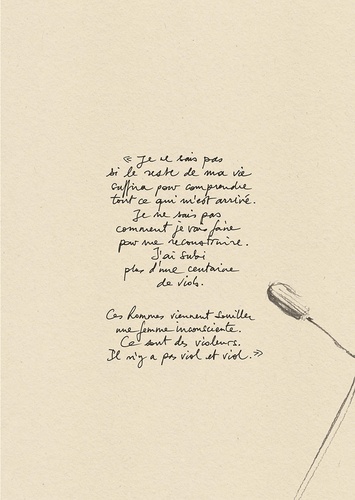 « Je ne sais pas
si le reste de ma vie
suffira pour comprendre
tout ce qui m'est arrivé.
Je ne sais pas
comment je vais faire
pour me reconstruire.
J'ai subi
plus d'une centaine
de viols.
Ces hommes viennent souiller
une femme inconsciente.
Ce sont des violeurs.
Il n'y a pas viol et viol. »